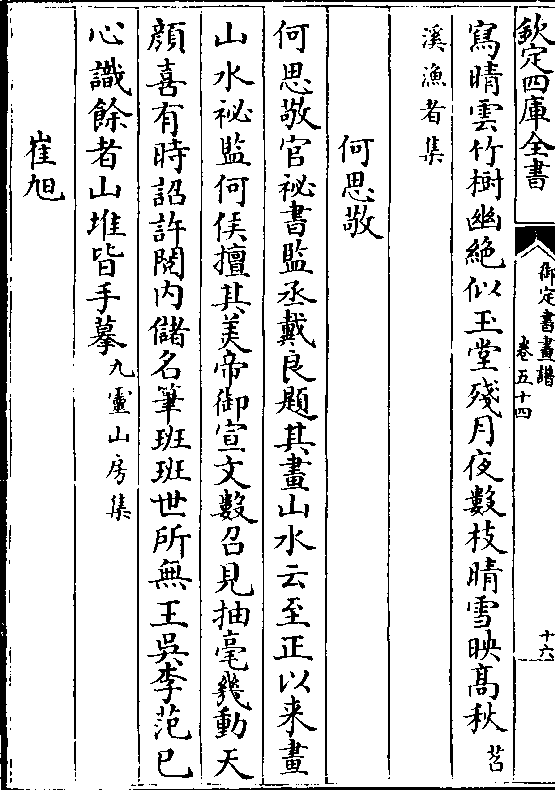 欽定四庫全書
御定書畫譜
卷五十四
十六
寫晴雲竹樹幽絶似玉堂殘月夜數枝晴雪映髙秋 苕
溪漁者集
何思敬
何思敬官祕書監丞戴良題其畫山水云至正以来畫
山水祕監何侯擅其美帝御宣文數召見抽毫幾動天
顔喜有時詔許閱内儲名筆班班世所無王吳李范已
心識餘者山堆皆手摹 九靈山房集
崔旭